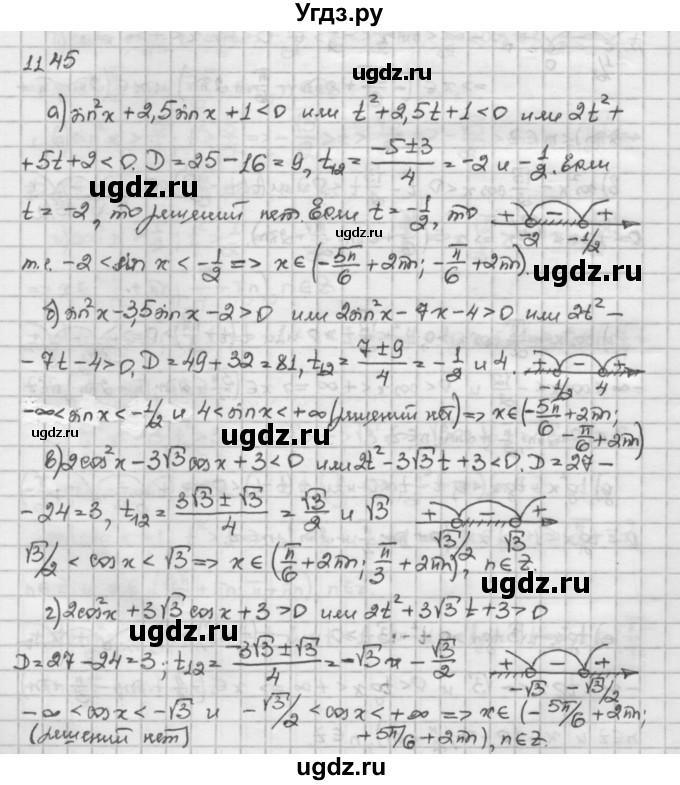 Угдз.ру
11.45
ugdz.ru
а) sin²x + 2,5sinx + 1 < 0 или t² + 2,5t + 1 < 0 или 2t² +
+ 5t + 2 < 0. D = 25 − 16 = 9, t₁₂ = (−5 ± 3)/4 = −2 и −1/2. Если
ugdz.ru ugdz.ru
t = −2, то решений нет. Если t = −1/2, то + − + −2 −1/2
т.е. −2 < sin x < −1/2 => x ∈ (−5π/6 + 2πn; −π/6 + 2πn).
ugdz.ru
б) sin²x − 3,5sinx − 2 > 0 или 2sin²x − 7x − 4 > 0 или 2t² −
− 7t − 4 > 0, D = 49 + 32 = 81, t₁₂ = (7 ± 9)/4 = −1/2 и 4. + − + −1/2 4
ugdz.ru ugdz.ru
−∞ < sinx < −1/2 и 4 < sinx < +∞ (решений нет) => x ∈ (−5π/6 + 2πn;
−π/6 + 2πn)
ugdz.ru
в) 2cos²x − 3√3cosx + 3 < 0 или 2t² − 3√3t + 3 < 0. D = 27 −
− 24 = 3, t₁₂ = (3√3 ± √3)/4 = √3/2 и √3 + − + √3/2 √3
ugdz.ru ugdz.ru
√3/2 < cosx < √3 => x ∈ (π/6 + 2πn; π/3 + 2πn), n ∈ Z.
ugdz.ru
г) 2cos²x + 3√3cosx + 3 > 0 или 2t² + 3√3t + 3 > 0
ugdz.ru
D = 27 − 24 = 3; t₁₂ = (−3√3 ± √3)/4 = −√3 и −√3/2 + − + −√3 −√3/2
ugdz.ru ugdz.ru
−∞ < cosx < −√3 и −√3/2 < cosx < +∞ => x ∈ (−5π/6 + 2πn;
(решений нет) +5π/6 + 2πn), n ∈ Z.
ugdz.ru